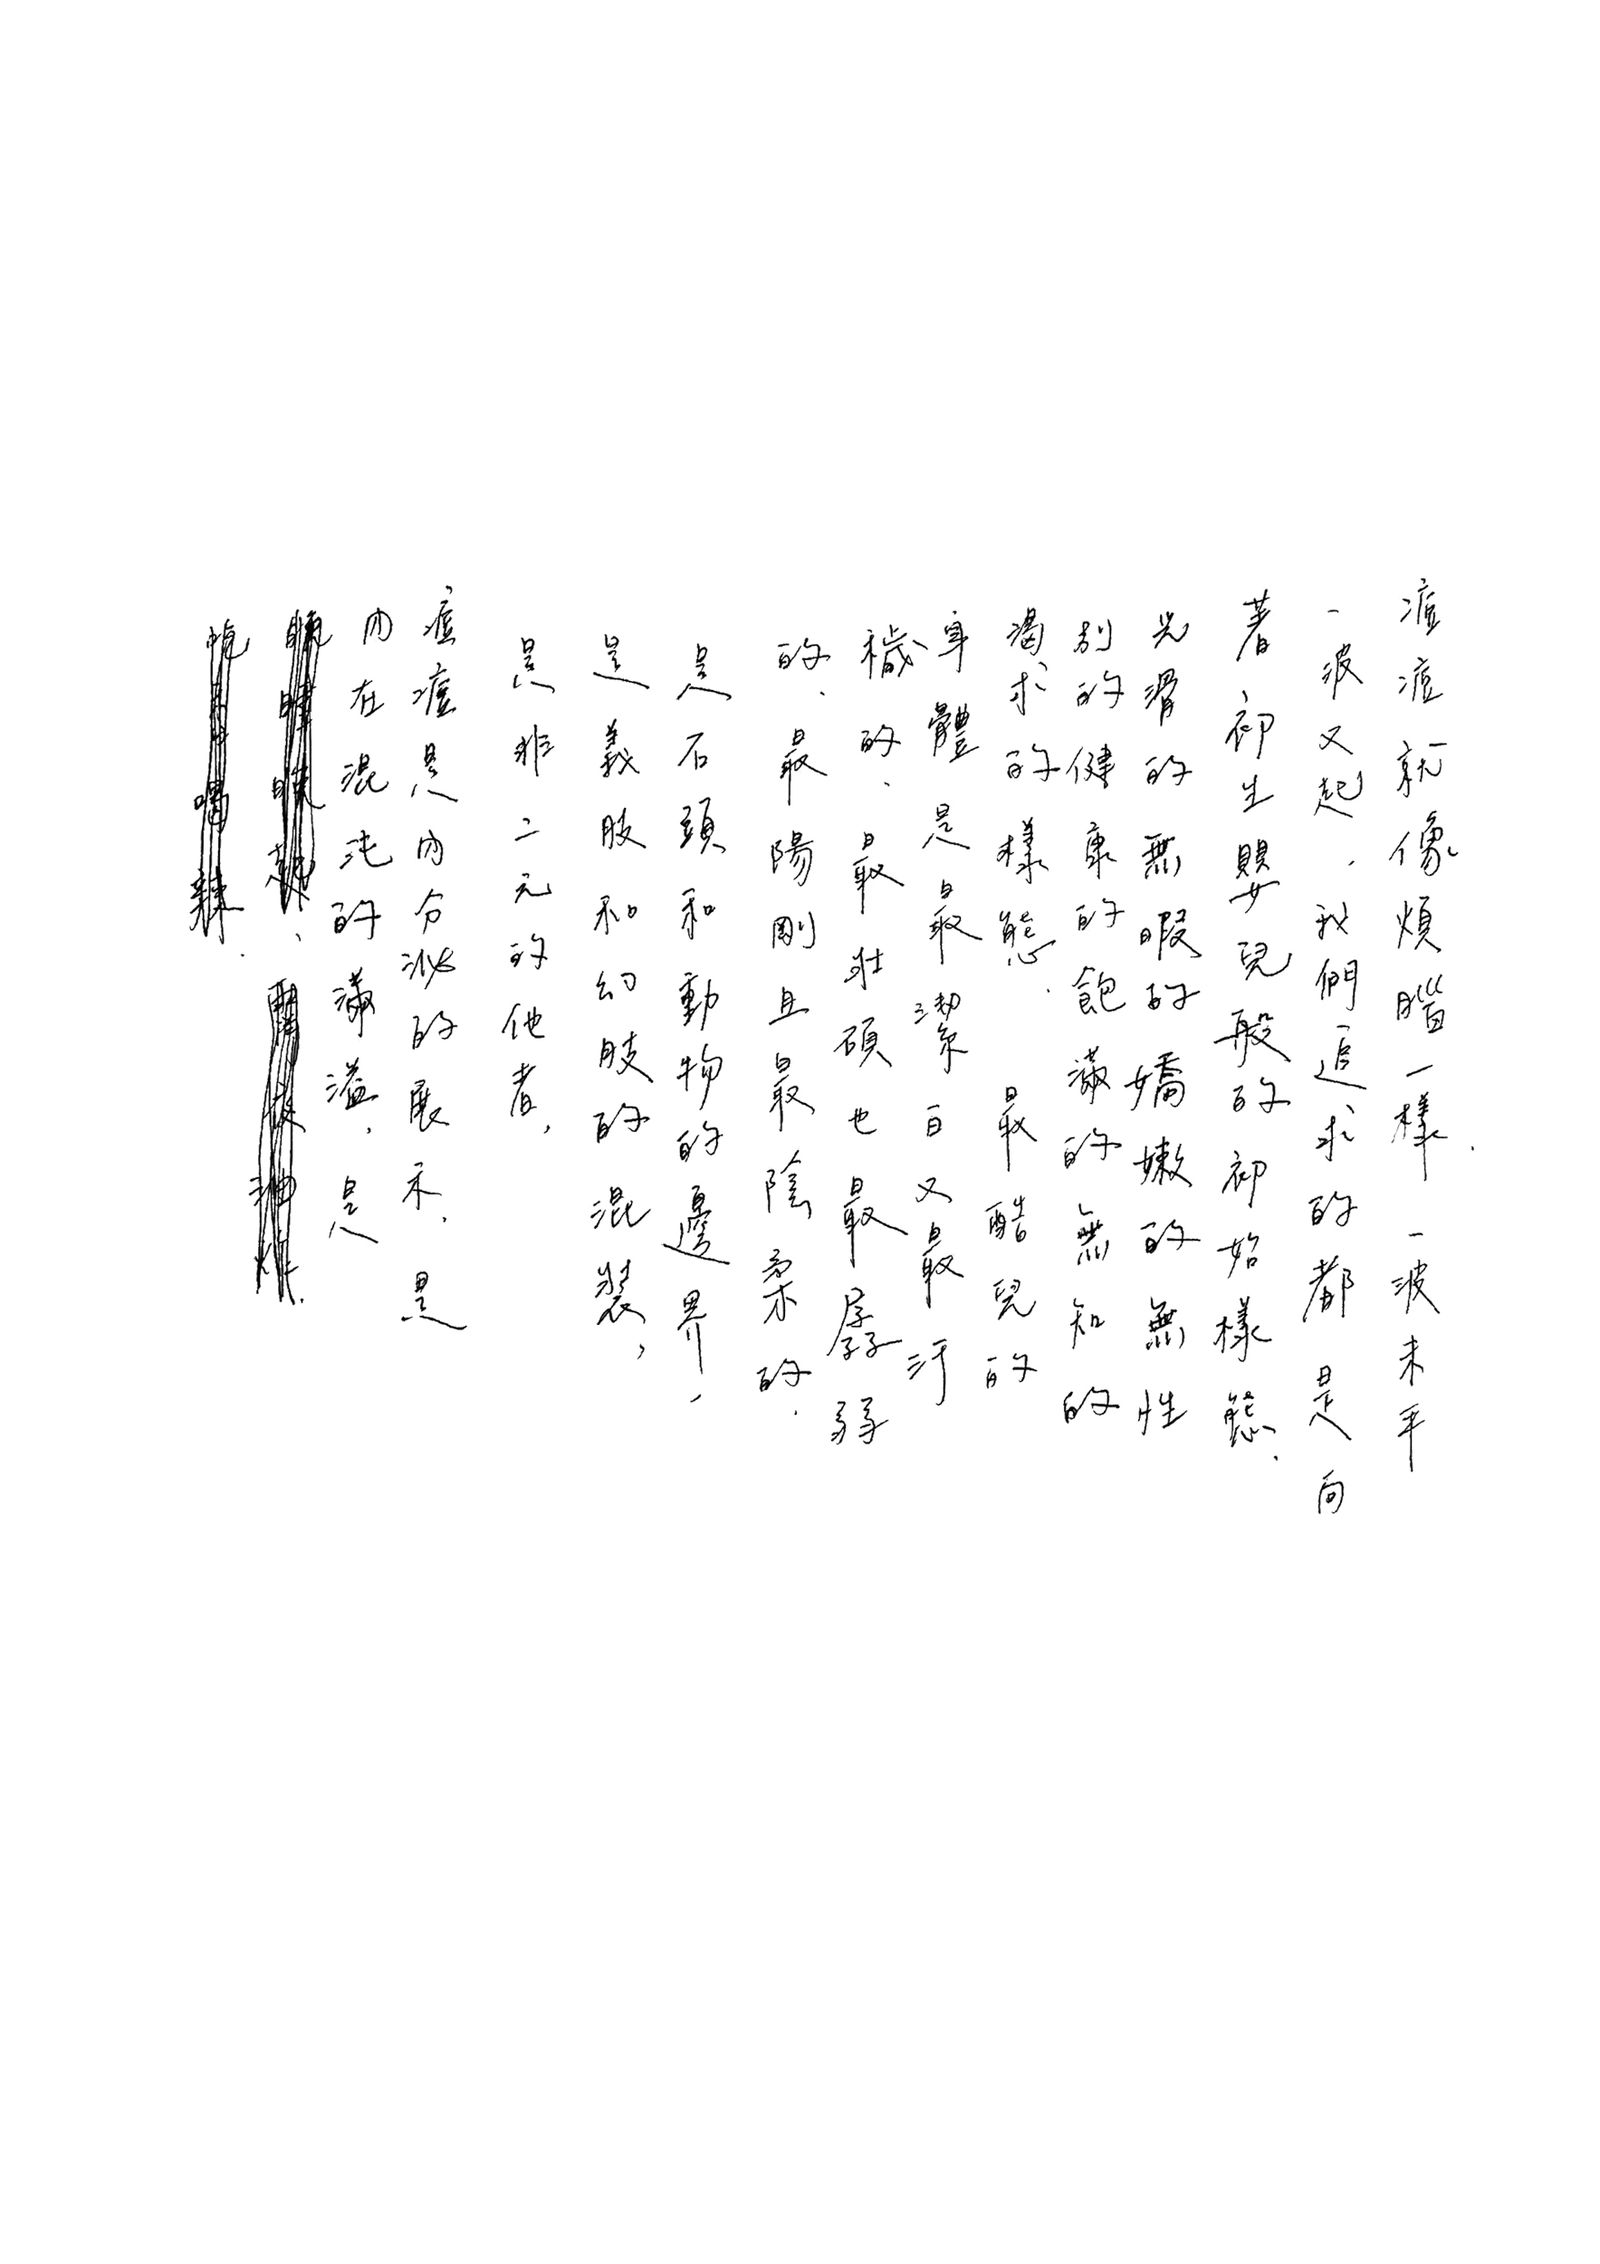 痘痘就像煩腦一樣.一波未平
一波又起.我們追求的都是向
著初生嬰兒般的初始樣態.
光滑的無暇的嬌嫩的無性
別的健康的飽滿的無知的
渴求的樣態.最酷兒的
身體是最潔白又最汙
穢的.最壯碩也最孱弱
的.最陽剛且最陰柔的.
是石頭和動物的邊界,
是義肢和幻肢的混裝,
是非二元的他者,
痘痘是內分泌的展示.是
內在混沌的滿溢,是
晚睡晚起、油炸.
喝辣.